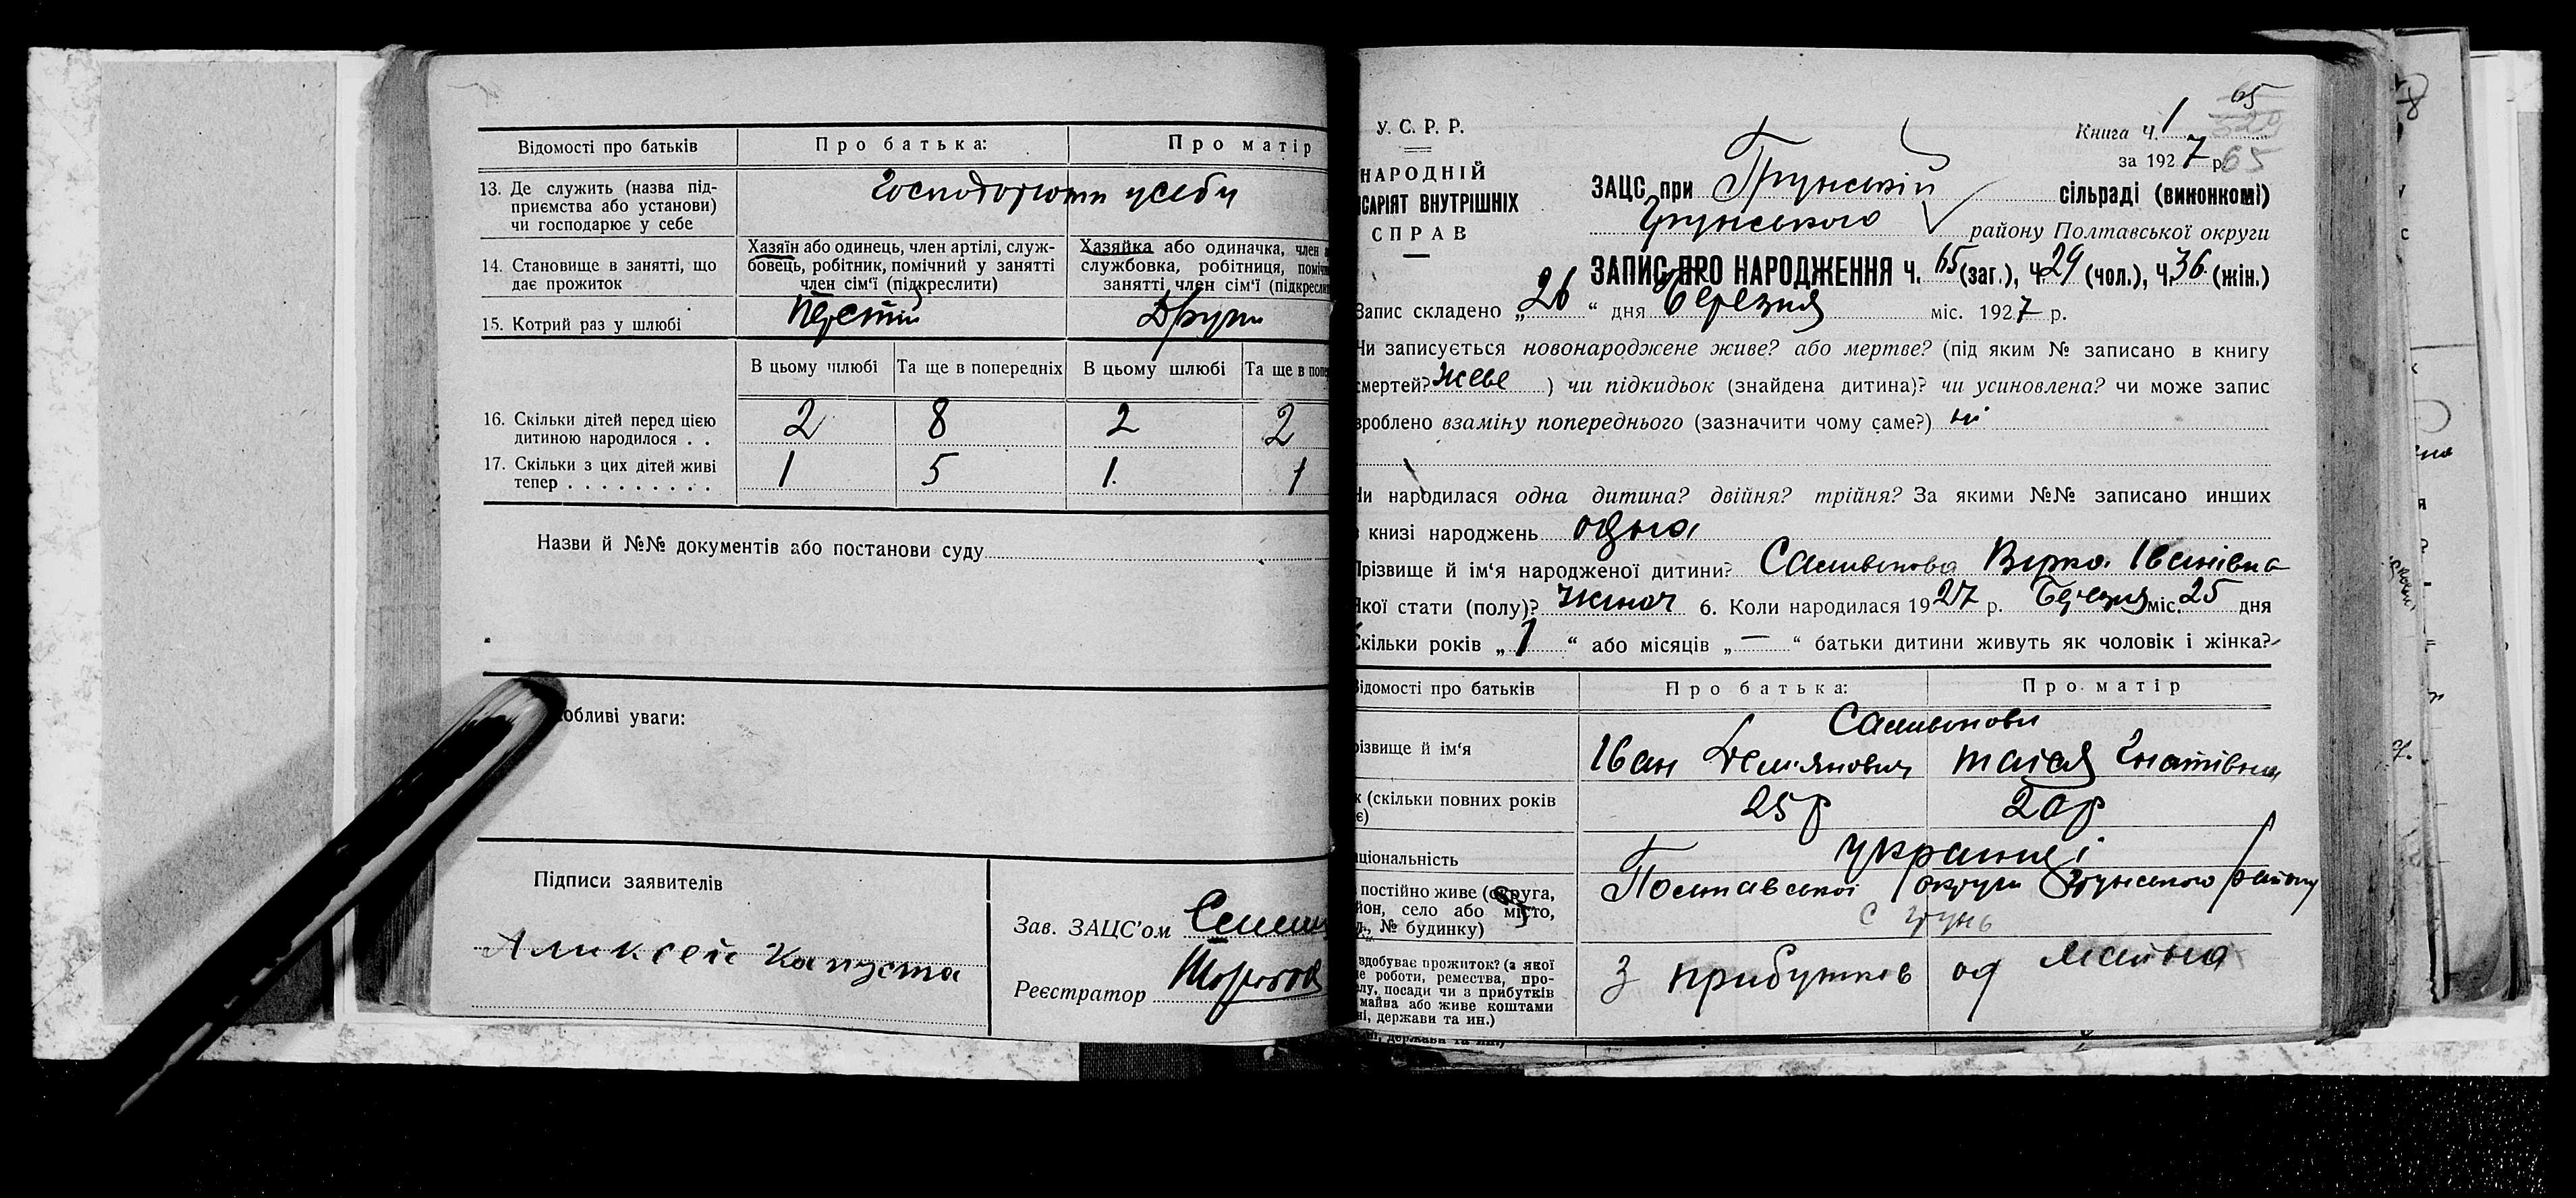 Відомості про батьків
Про батька:
Про матір
13. Де служить (назва під-
приємства або установи)
чи господарює у себе
Господорюти усебе
14. Становище в занятті, що
дає прожиток
Хазяїн або одинець, член артілі, служ-
бовець, робітник, помічний у занятті
член сім'ї (підкреслити)
Хазяйка або одиначка, член
службовка, робітниця, поміч
занятті член сім'ї (підкресли
15. Котрий раз у шлюбі
Други
В цьому шлюбі
Та ще в попередніх
В цьому шлюбі
Та ще в попе
16. Скільки дітей перед цією
дитиною народилося . .
2 8 2 2
17. Скільки з цих дітей живі
тепер . . . . . . . . .
1 5 1. 1
Назви й №№ документів або постанови суду
обливі уваги:
Підписи заявителів
Аликсей Капуста
Зав. ЗАЦС'ом
Реєстратор
У. С. Р. Р.
НАРОДНІЙ
ІСАРІЯТ ВНУТРІШНІХ
СПРАВ
65
Книга Ч. 1
за 1927 р. 65
ЗАЦС при Грунській сільраді (виконкомі)
Грунського району Полтавської округи
ЗАПИС ПРО НАРОДЖЕННЯ Ч. 65 (заг.), Ч. 29 (чол.), Ч. 36 (жін.)
Запис складено „26“ дня Березня міс. 1927 р.
Чи записується новонароджене живе? або мертве? (під яким № записано в книгу
смертей? живе ) чи підкидьок (знайдена дитина)? чи усиновлена? чи може запис
зроблено взаміну попереднього (зазначити чому саме?) ні
Чи народилася одна дитина? двійня? трійня? За якими №№ записано инших
книзі народжень одна
Прізвище й ім'я народженої дитини? Вірка Іванівна
Якої стати (полу)? жіноч 6. Коли народилася 1927 р. Березня міс. 25 дня
Скільки років „1“ або місяців „—“ батьки дитини живуть як чоловік і жінка?
Відомості про батьків
Про батька:
Про матір
різвище й ім'я
Іван Демянович
Таїся Гнатівна
к (скільки повних років
є)
25 р
20 р
аціональність
українці
постійно живе (округа,
йон, село або місто,
л., № будинку)
Полтавської округи Грунського району
с Грунь
здобуває прожиток? (з якої
це роботи, ремества, про-
слу, посади чи з прибутків
майва або живе коштами
ні, держави та ин.)
З прибутків од майна